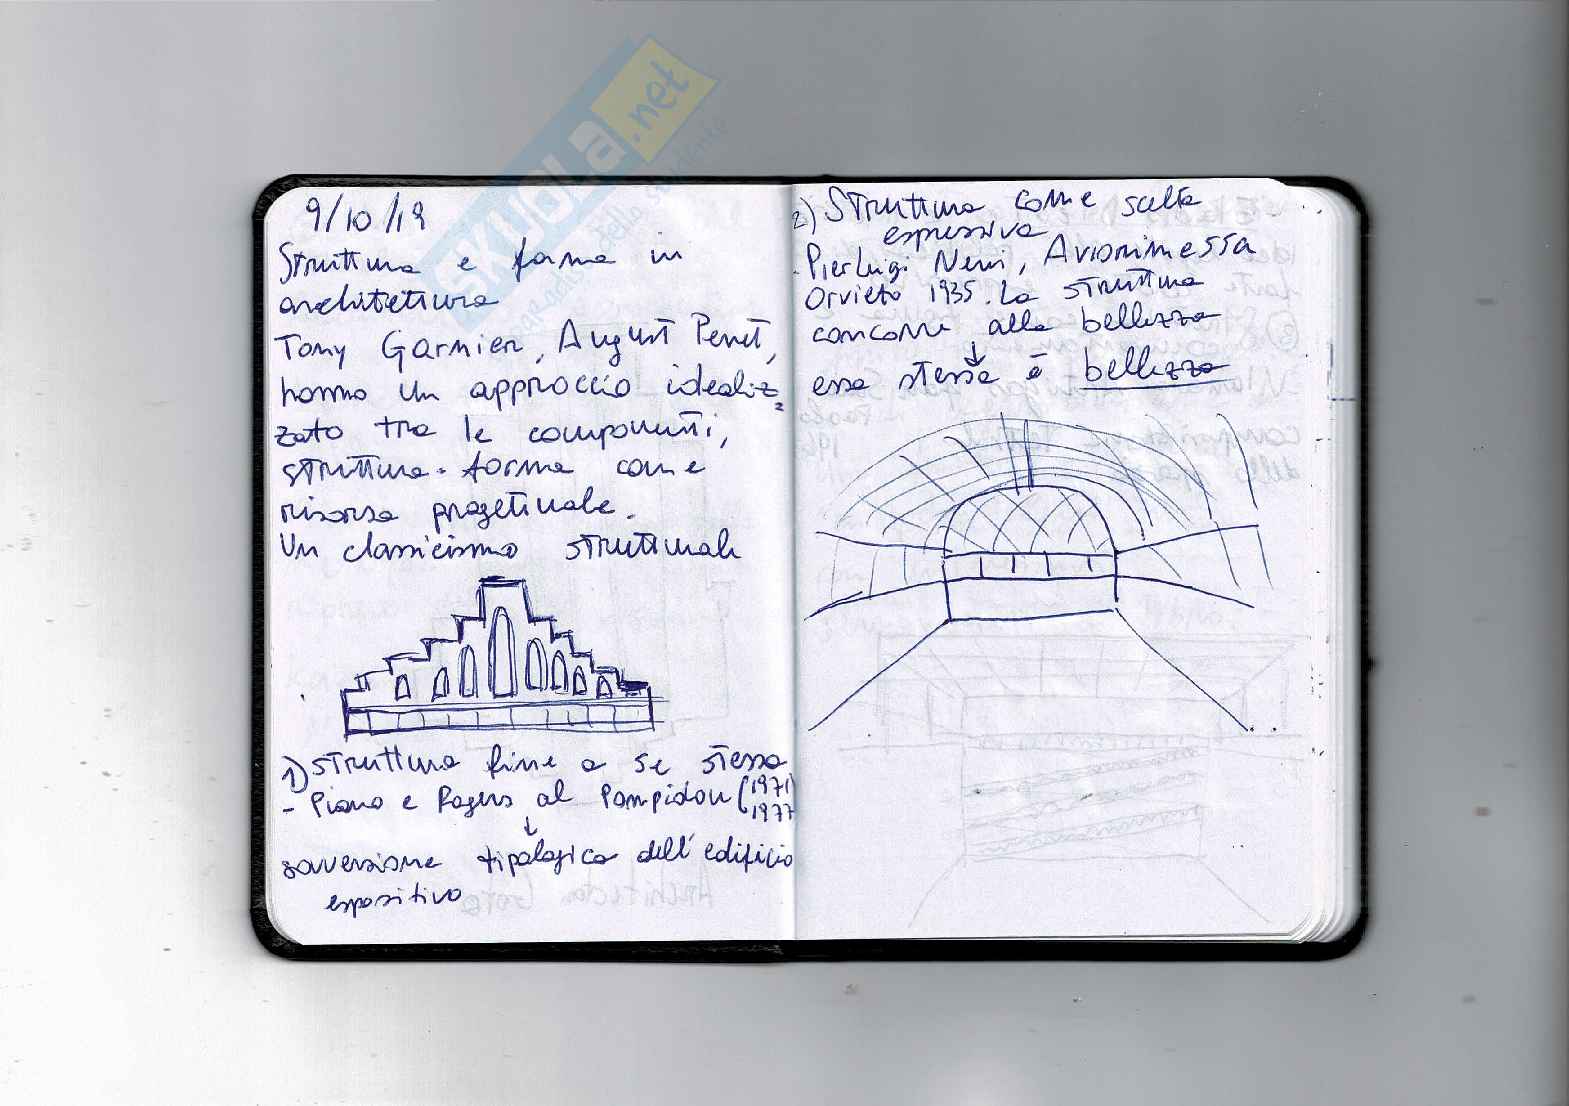 SKUOLA.net
paradiso dello studente
9/10/19
Struttura e forma in
architettura
Tony Garnier, August Perret,
hanno un approccio idealiz=
zato tra le componenti,
struttura-forma come
risorsa progettuale.
Un classicismo strutturale
1) struttura fine a se stessa
- Piano e Rogers al Pompidou (1971
1977
↓
sovversione tipologica dell'edificio
espositivo
2) Struttura come scelta
espressiva
- Pierluigi Nervi, Aviorimessa
Orvieto 1935. La struttura
concorre alla bellezza
↓
essa stessa è bellezza